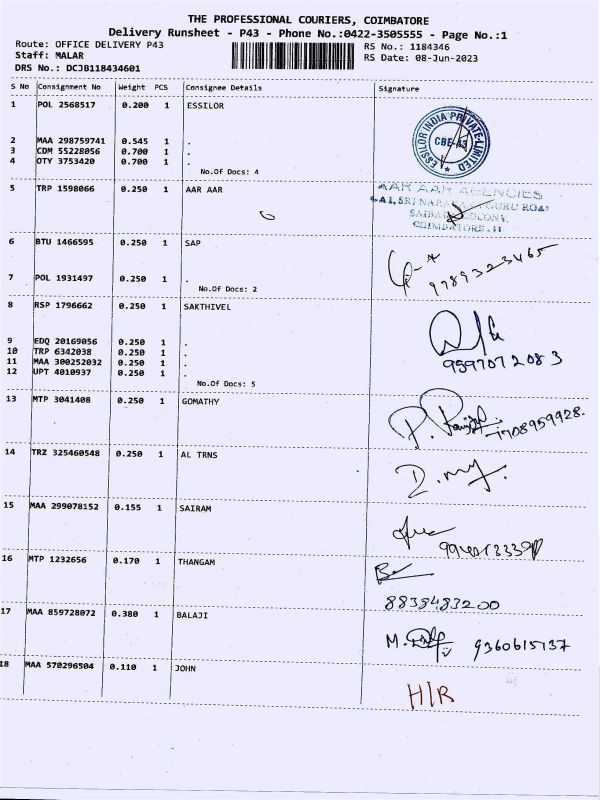 THE PROFESSIONAL COURIERS, COIMBATORE
Delivery Runsheet - P43 - Phone No.:0422-3505555 - Page No.:1
Route: OFFICE DELIVERY P43
Staff: MALAR
DRS No.: DCJB118434601
RS No.: 1184346
RS Date: 08-Jun-2023
S No Consignment No Weight PCS Consignee Details Signature
1 POL 2568517 0.200 1 ESSILOR
ESSILOR INDIA PRIVATE LIMITED
CBE-43
2 MAA 298759741 0.545 1 .
3 COM 55228056 0.700 1 .
4 OTY 3753420 0.700 1 .
No.Of Docs: 4
5 TRP 1598066 0.250 1 AAR AAR
AAR AAR AGENCIES
COIMBATORE-11
6 BTU 1466595 0.250 1 SAP
9789323465
7 POL 1931497 0.250 1 .
No.Of Docs: 2
8 RSP 1796662 0.250 1 SAKTHIVEL
9597072083
9 EDQ 20169056 0.250 1 .
10 TRP 6342038 0.250 1 .
11 MAA 300252032 0.250 1 .
12 UPT 4010937 0.250 1 .
No.Of Docs: 5
13 MTP 3041408 0.250 1 GOMATHY
14 TRZ 325460548 0.250 1 AL TRNS
15 MAA 299078152 0.155 1 SAIRAM
16 MTP 1232656 0.170 1 THANGAM
8838483200
17 MAA 859728072 0.380 1 BALAJI
9360615137
18 MAA 570296504 0.110 1 JOHN
H/R